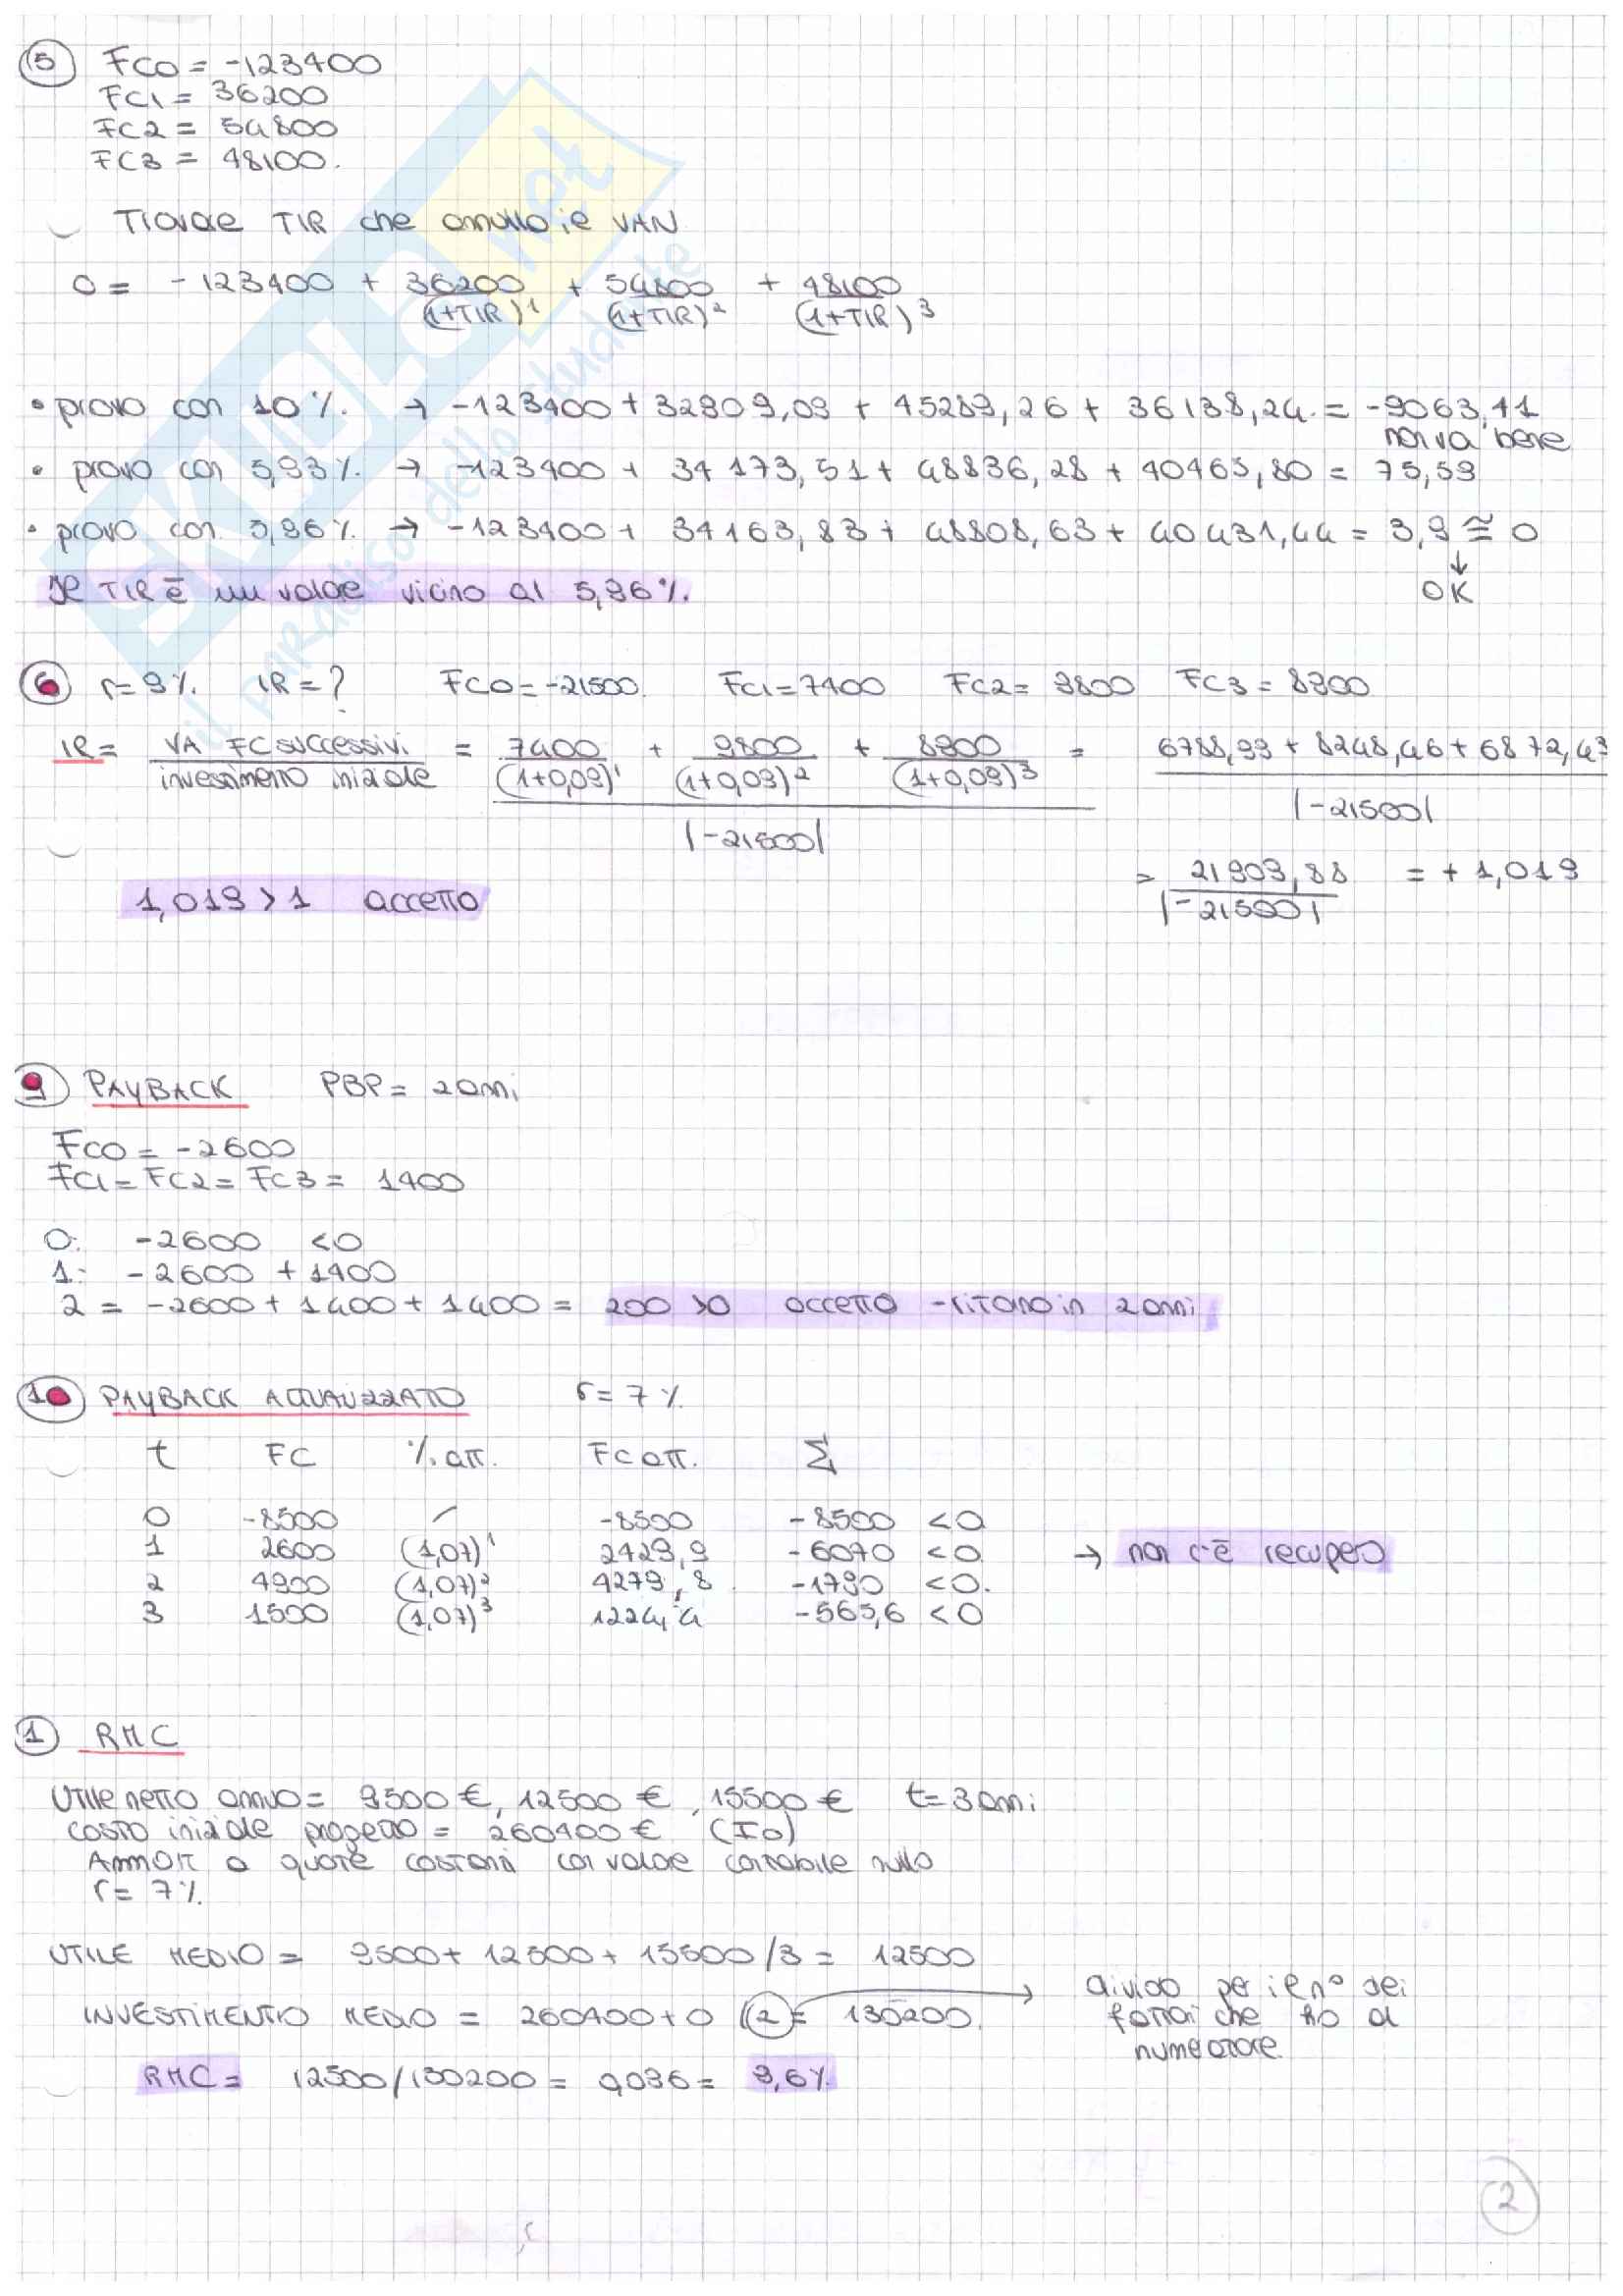 5 FC0 = -123400
FC1 = 36200
FC2 = 54800
FC3 = 48100.
Trovare TIR che annulla il VAN
0 = -123400 + 36200/(1+TIR)^1 + 54800/(1+TIR)^2 + 48100/(1+TIR)^3
• provo con 10%. → -123400 + 32909,09 + 45289,26 + 36138,24 = -9063,41
non va bene
• provo con 5,93%. → -123400 + 34173,51 + 48836,28 + 40465,80 = 75,59
• provo con 5,96% → -123400 + 34163,83 + 48808,63 + 40431,44 = 3,9 ≅ 0
↓
OK
Il TIR è un valore vicino al 5,96%.
6 r = 9%. IR = ? FC0 = -21500. FC1 = 7400 FC2 = 9800 FC3 = 8900
IR = VA FC successivi / investimento iniziale = 7400/(1+0,09)^1 + 9800/(1+0,09)^2 + 8900/(1+0,09)^3 = 6788,99 + 8248,46 + 6872,43
|-21500| |-21500|
= 21909,88 / |-21500| = + 1,019
1,019 > 1 accetto
9 PAYBACK PBP = 2 anni
FC0 = -2600
FC1 = FC2 = FC3 = 1400
0: -2600 <0
1: -2600 + 1400
2 = -2600 + 1400 + 1400 = 200 >0 accetto - ritorno in 2 anni
10 PAYBACK ATTUALIZZATO r = 7%
t FC %. att. FC att. Σ
0 -8500 / -8500 -8500 <0
1 2600 (1,07)^1 2429,9 -6070 <0 → non c'è recupero
2 4900 (1,07)^2 4279,8 -1790 <0.
3 1500 (1,07)^3 1224,4 -565,6 <0
1 RMC
Utile netto annuo = 9500 €, 12500 €, 15500 € t = 3 anni
costo iniziale progetto = 260400 € (I0)
Ammort a quote costanti con valore contabile nullo
r = 7%.
UTILE MEDIO = 9500 + 12500 + 15500 /3 = 12500
INVESTIMENTO MEDIO = 260400 + 0 /2 = 130200.
→ divido per il n° dei
fattori che ho al
numeratore.
RMC = 12500/130200 = 0,096 = 9,6%.
2
SKUOLA.net
il paradiso dello studente